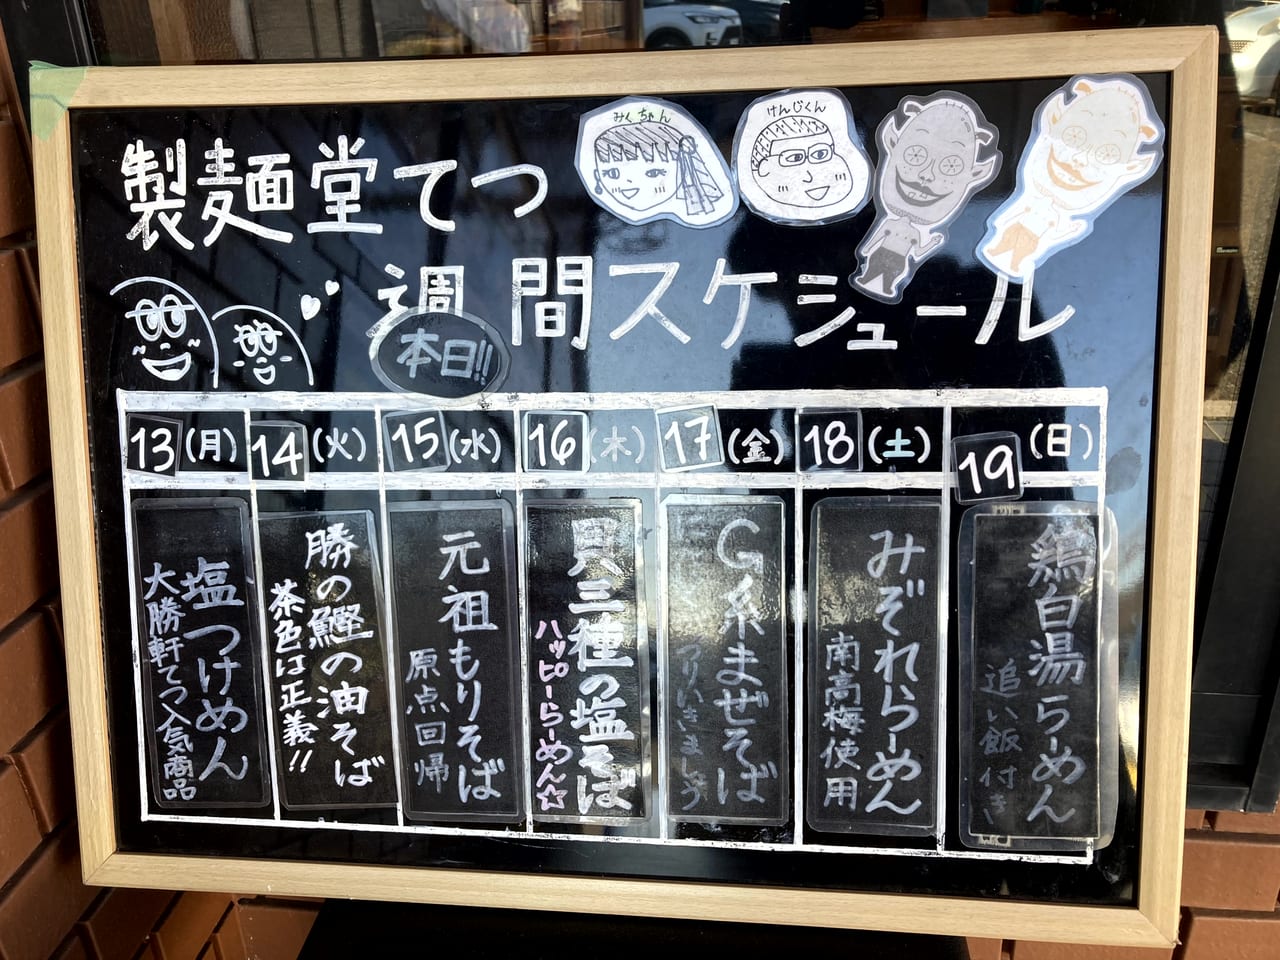 製麺堂てつ
みくちゃん
けんじくん
週間スケジュール
本日!!
13(月)
14(火)
15(水)
16(木)
17(金)
18(土)
19(日)
塩つけめん
大勝軒てつ人気商品
勝の鰹の油そば
茶色は正義!!
元祖もりそば
原点回帰
貝三種の塩そば
ハッピーらーめん☆
G系まぜそば
フリいきましょう
みぞれらーめん
南高梅使用
鶏白湯らーめん
追い飯付き